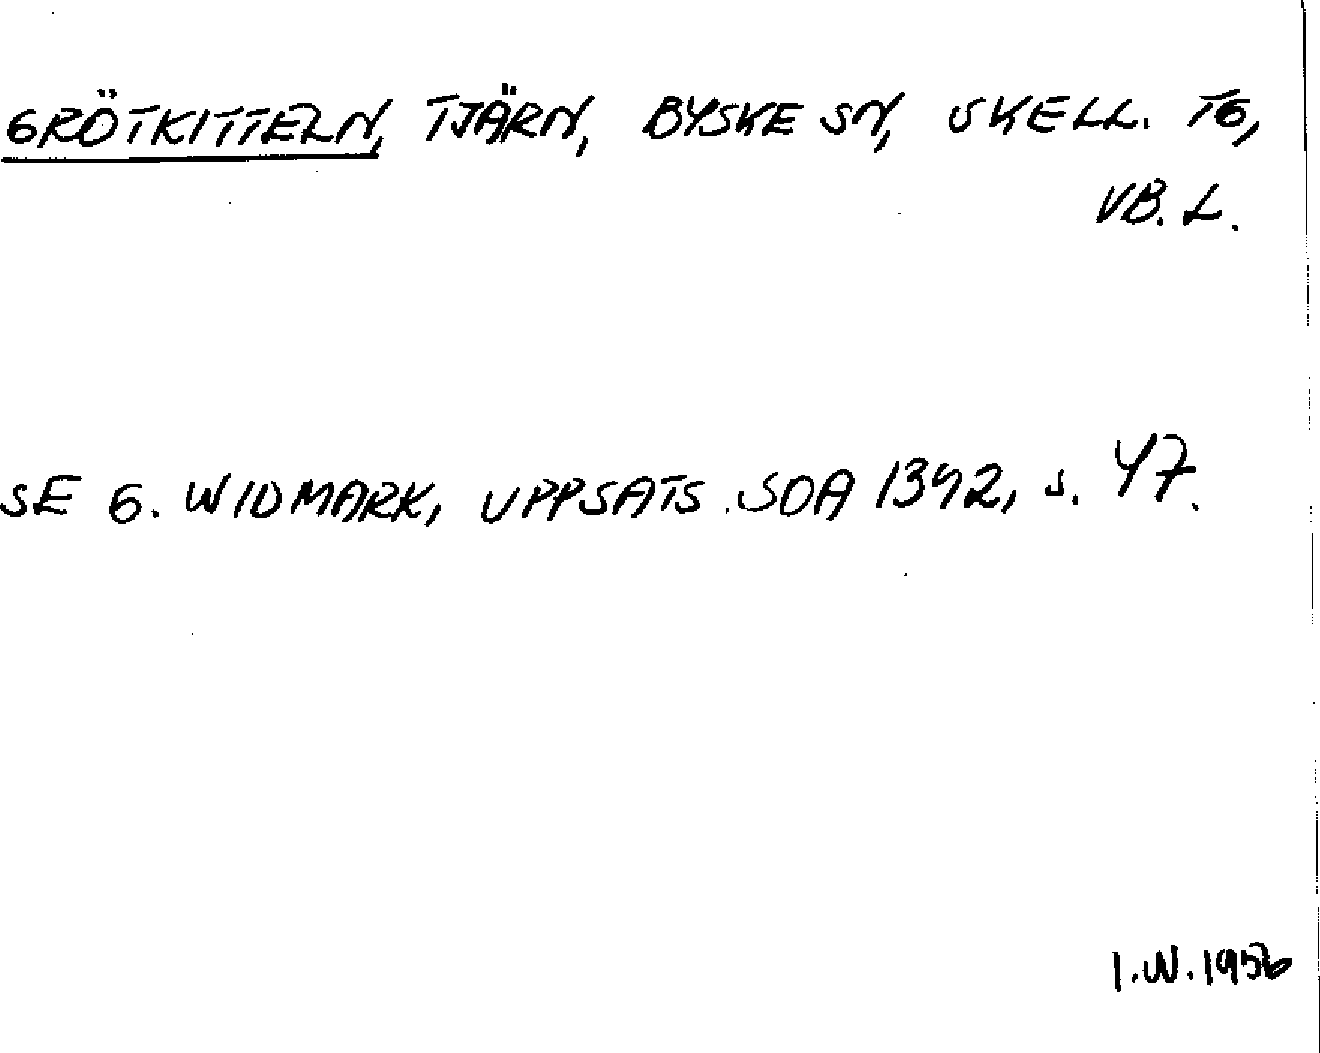 GRÖTKITTELN, TJÄRN, BYSKE SN, SKELL. TG,
VB. L.
SE G. WIDMARK, UPPSATS SOA 1342, s. 47.
I.W. 1956